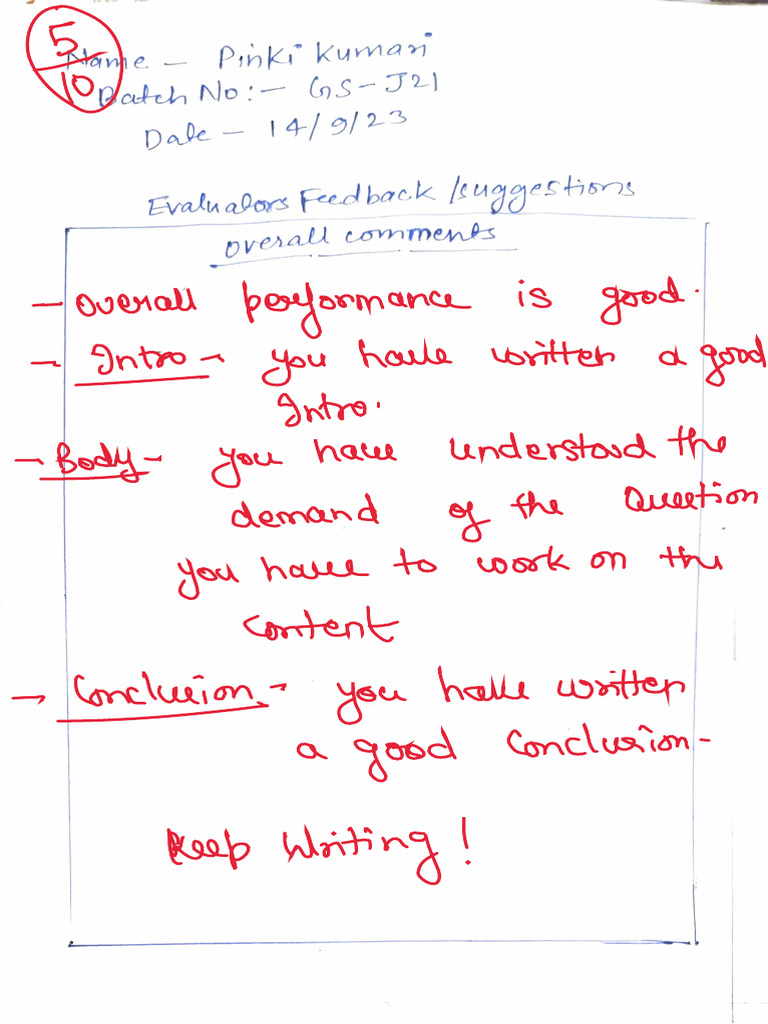 5
10
Name - Pinki Kumari
Batch No:- GS-J21
Date - 14/9/23
Evaluators Feedback /suggestions
overall comments
- Overall performance is good.
- Intro - you have written a good
Intro.
- Body - you have understood the
demand of the Question
you have to work on the
content
- Conclusion - you have written
a good conclusion -
Keep Writing!